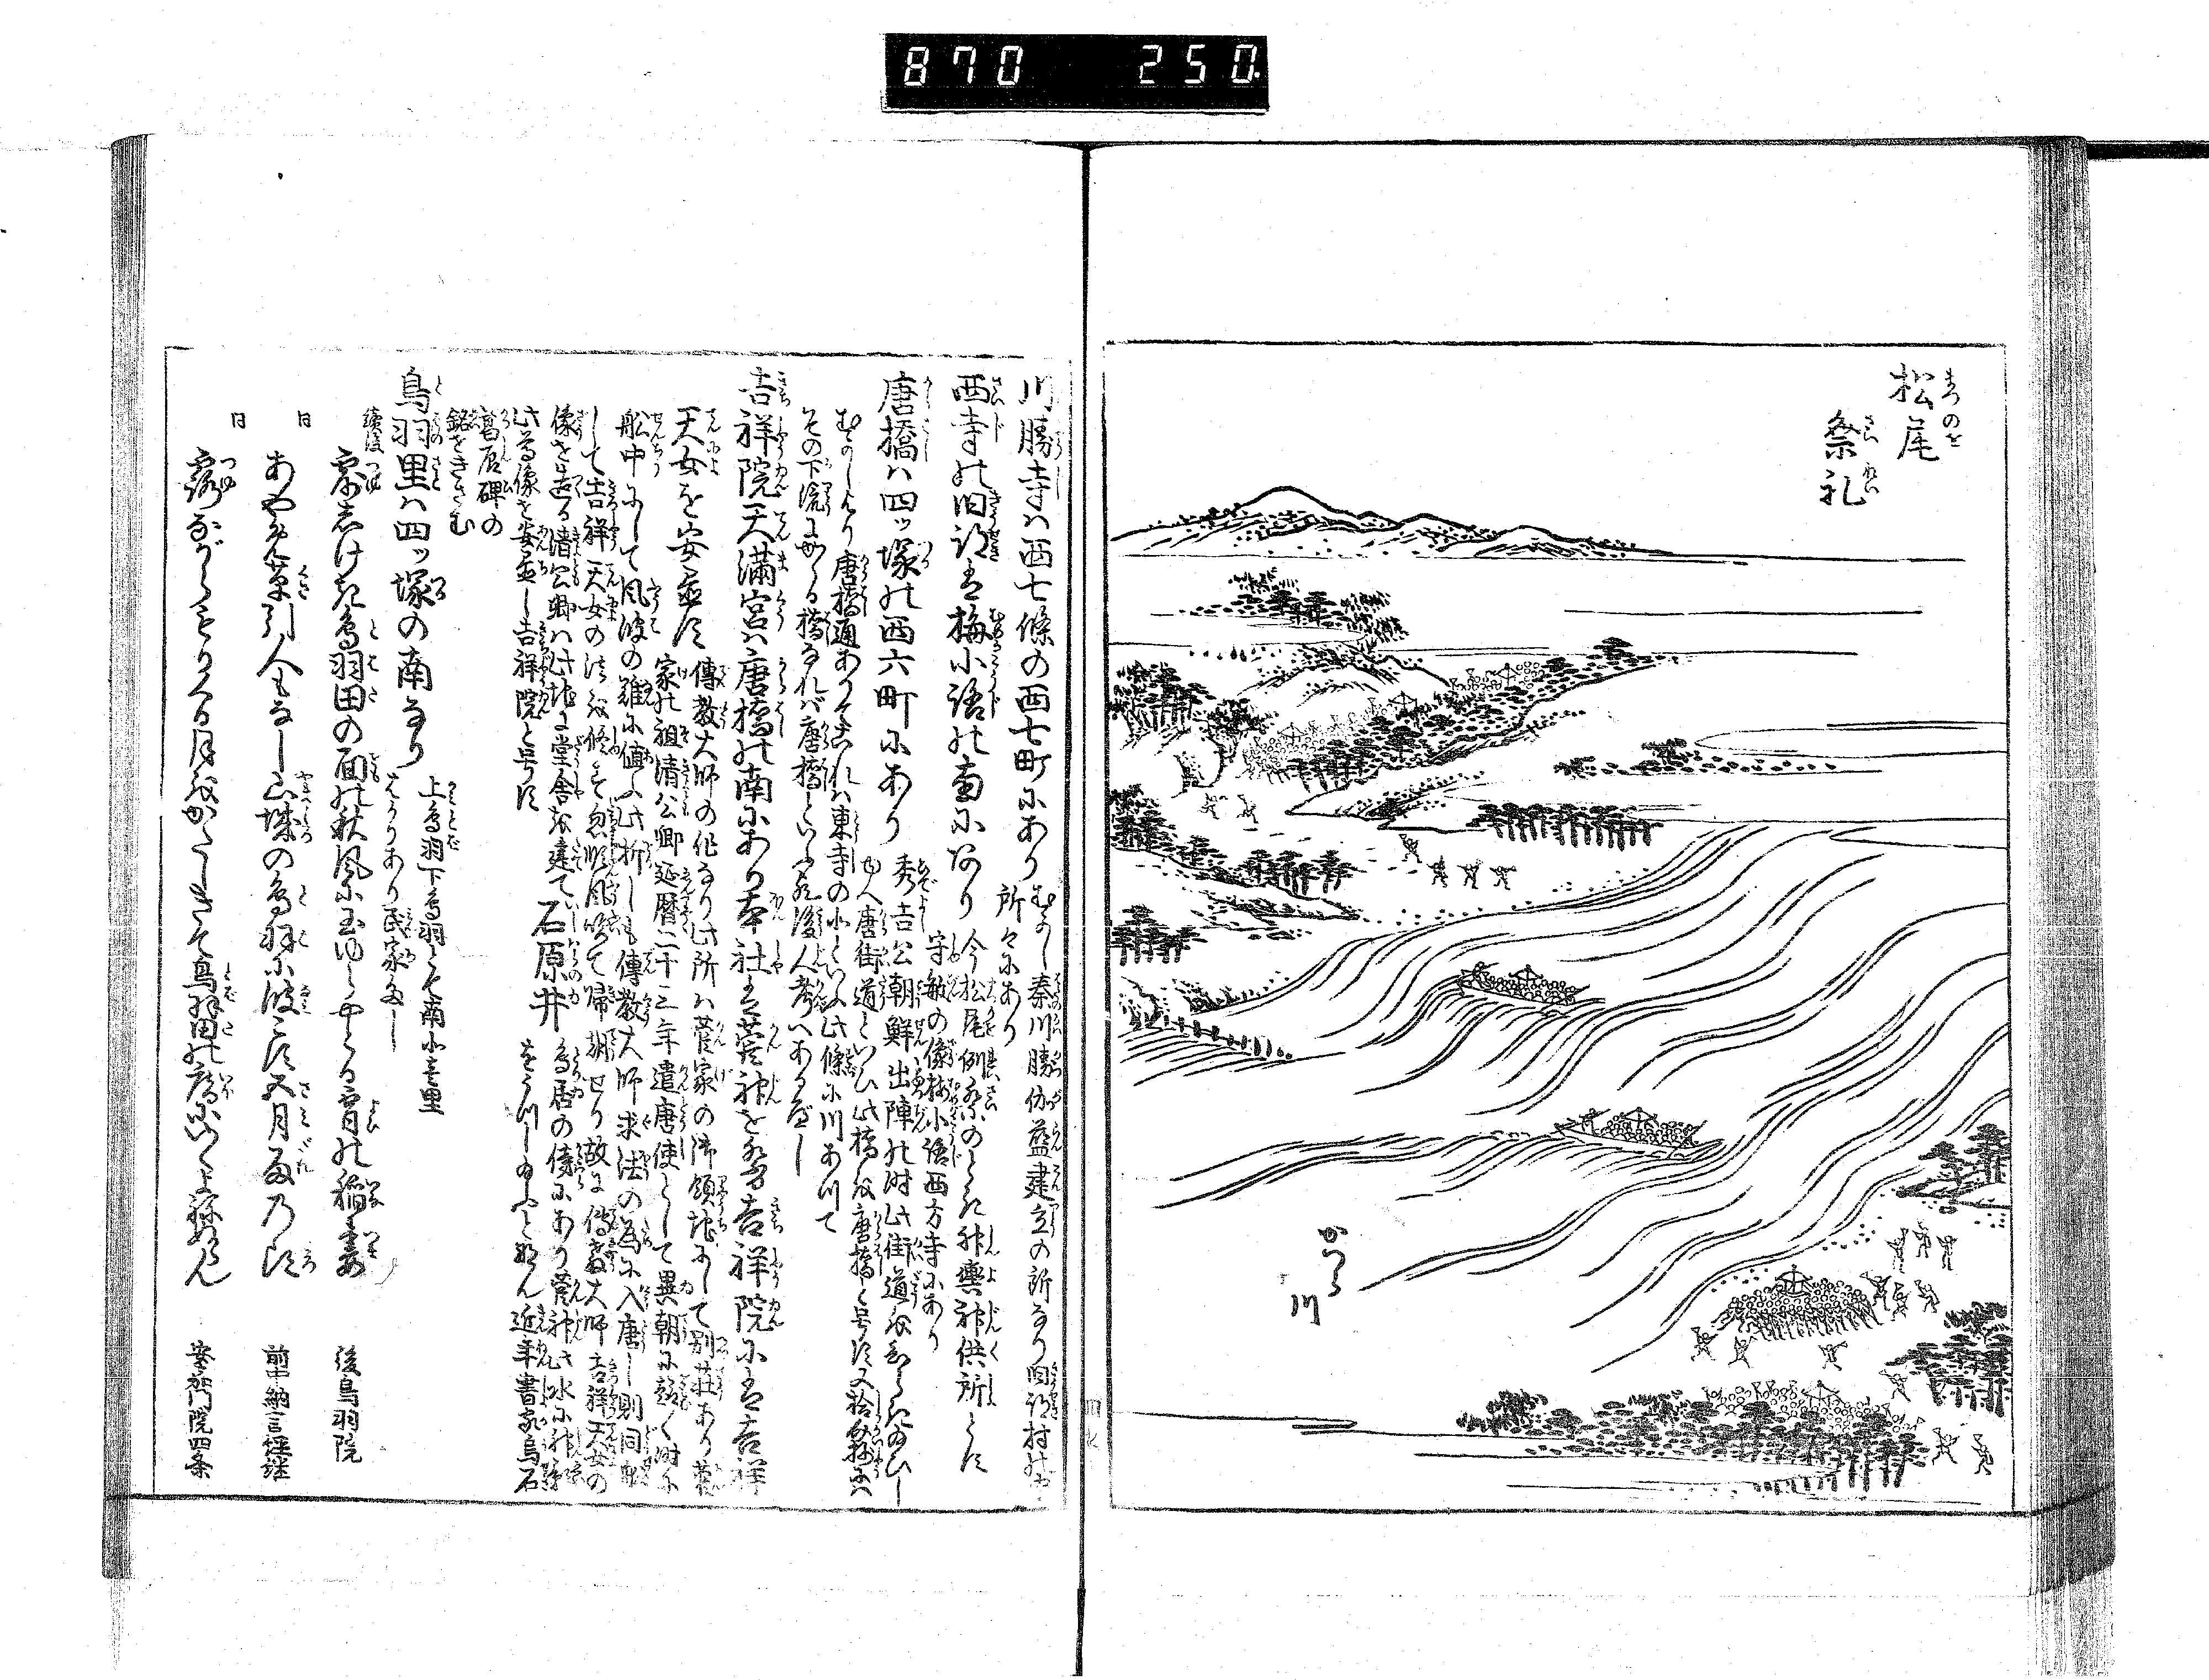 870 250
松尾
祭礼
かつら
川
川勝寺ハ西七條の西七町にあり むかし秦川勝伽藍建立の所なり旧跡村の
所々にあり
西寺の旧跡は梅小路の南にあり 今松尾例祭のとき神輿神供所とす
守敏の像梅小路西方寺にあり
唐橋ハ四ツ塚の西六町にあり 秀吉公朝鮮出陣の時此街道を
唐街道といひ此橋を唐橋と号す又拾芥抄にハ
むかしより唐橋通ありこれハ東寺の北といふ此條に川あつて
その下流にかゝる橋なれバ唐橋といふ乎後人考へあるべし
吉祥院天満宮ハ唐橋の南にあり本社は菅神を祭る吉祥院には吉祥
天女を安置す 傳教大師の作なり此所ハ菅家の御領地にして別荘あり菅
家の祖清公卿延暦二十三年遣唐使として異朝に赴く時に
船中にして風波の難に値ふ此折しも傳教大師求法の為に入唐し則同船
して吉祥天女の法を修す忽順風吹て帰朝せり故に傳教大師吉祥天女の
像を造る清公卿ハ此地に堂舎を建て
此尊像を安置し吉祥院と号す
石原井 鳥居の傍にあり菅神此水に神影
をうつし給ふとなん近年書家烏石
葛辰碑の
銘をきざむ
鳥羽里ハ四ツ塚の南なり 上鳥羽下鳥羽とて南北壱里
ばかりあり民家多し
續後 露しげき鳥羽田の面の秋風に玉ゆらやどる宵の稲妻 後鳥羽院
同 あやめ草引人もなし山城の鳥羽に波こす五月雨のころ 前中納言
同 露ながらもりくる月をかたしきて鳥羽田の庵に 安嘉門院四条